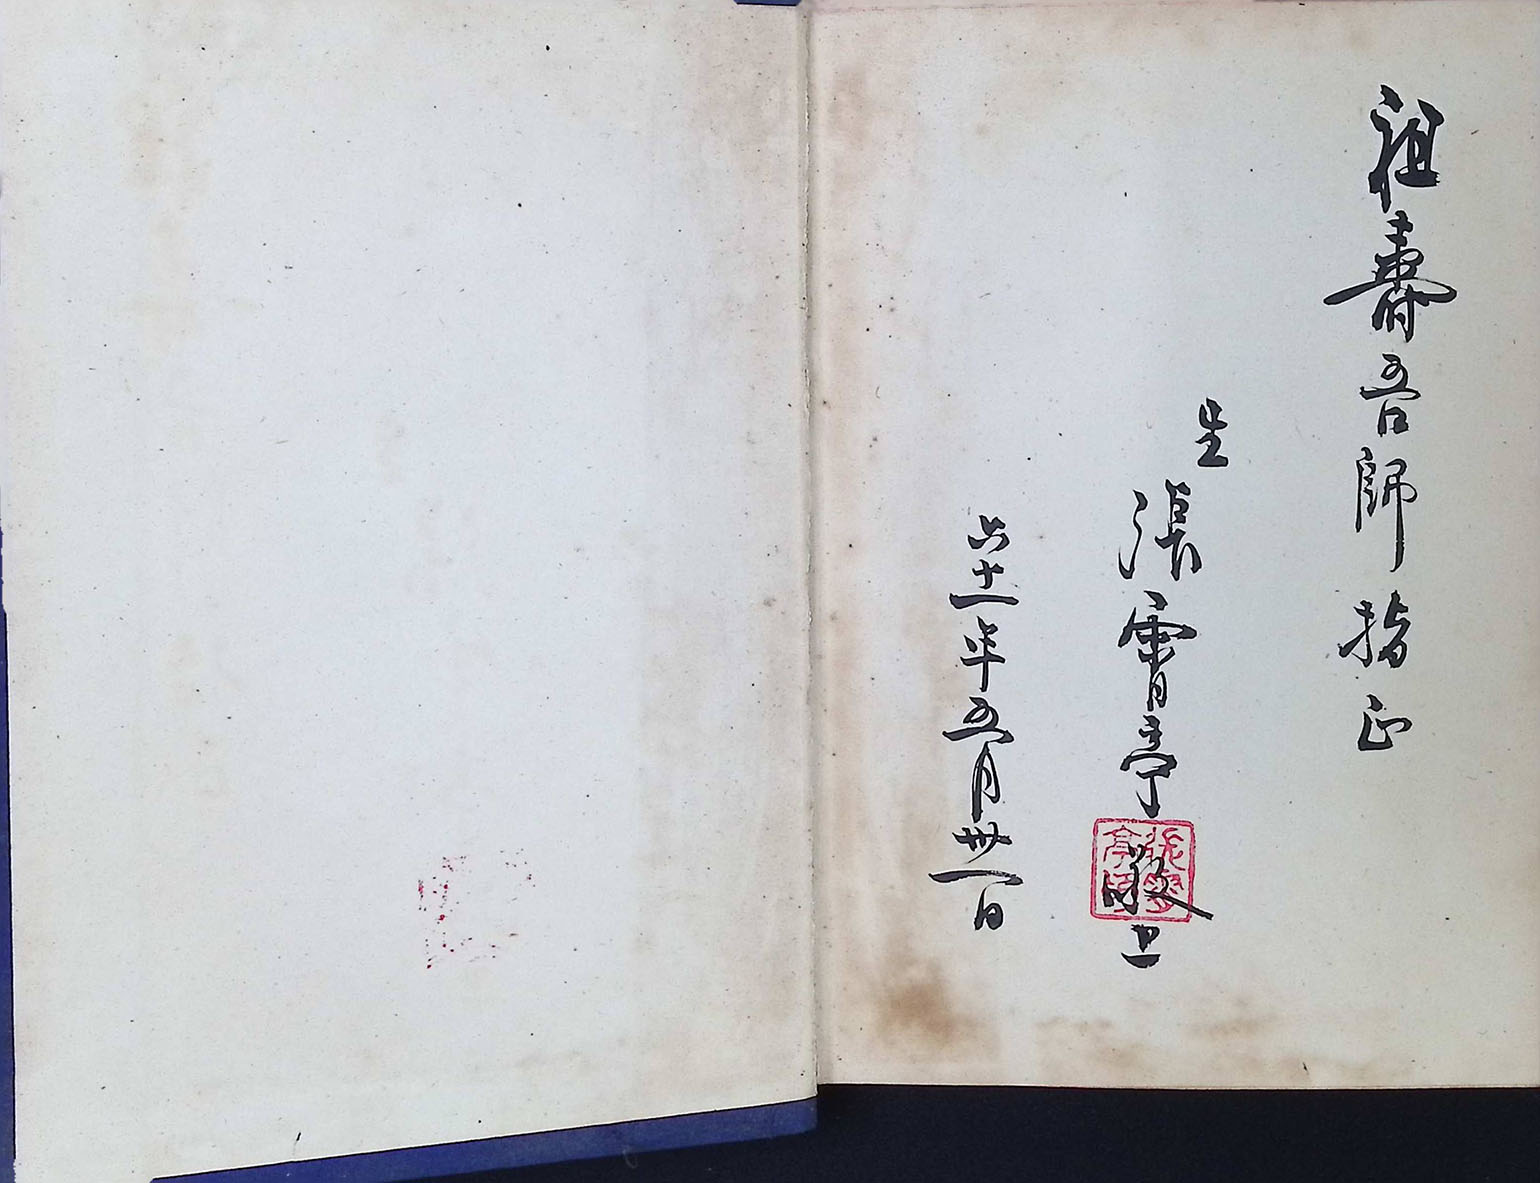 祖壽吾師指正
生 張霄亭敬上
六十一年五月卅一日
張霄亭印